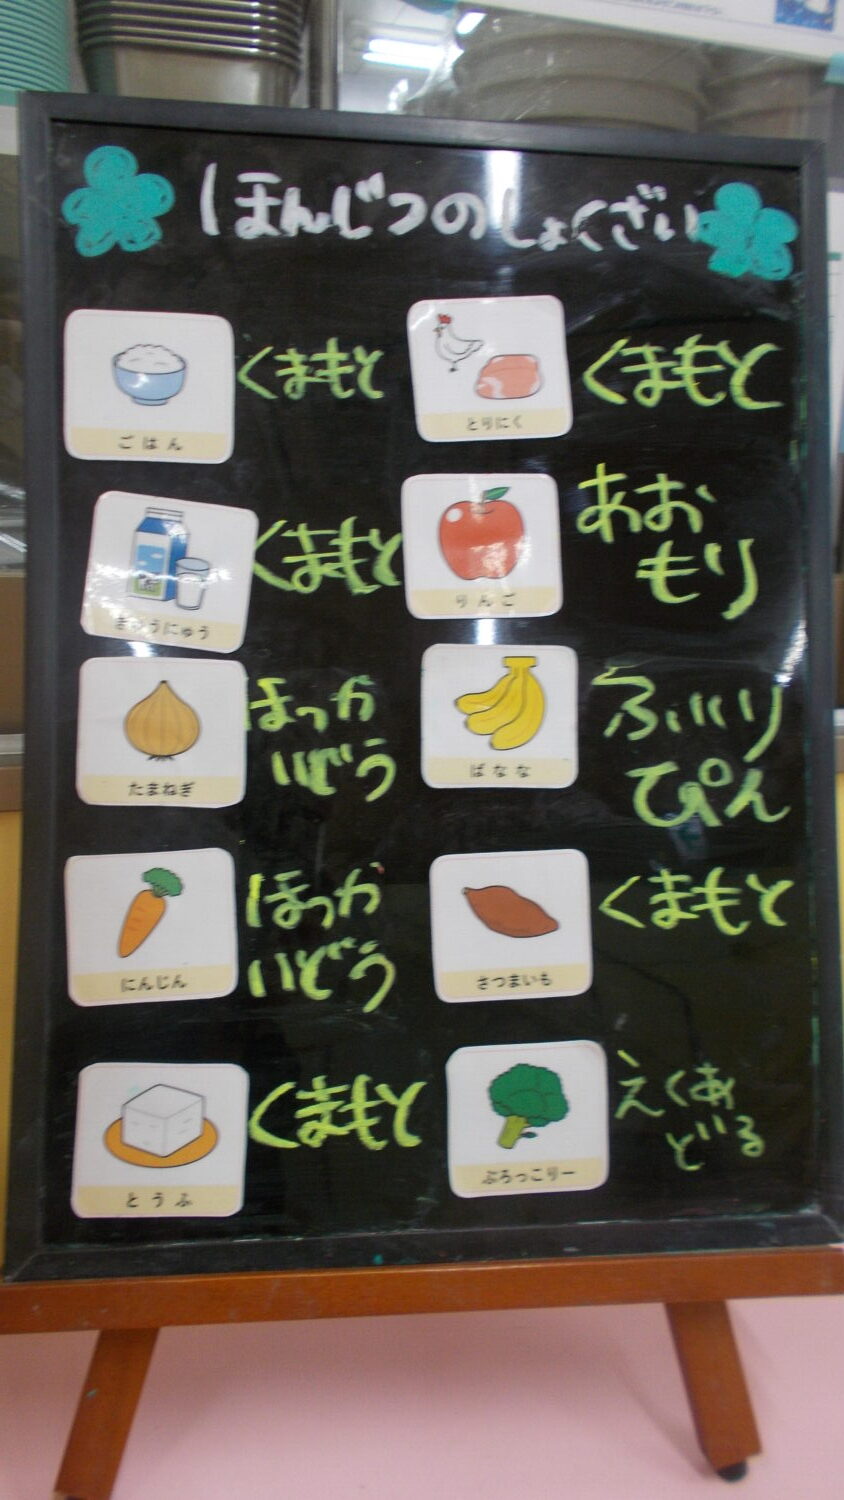 ほんじつのしょくざい
ごはん
くまもと
とりにく
くまもと
ぎゅうにゅう
くまもと
りんご
あお
もり
たまねぎ
ほっか
いどう
ばなな
ふぃり
ぴん
にんじん
ほっか
いどう
さつまいも
くまもと
とうふ
くまもと
ぶろっこりー
えくあ
どる